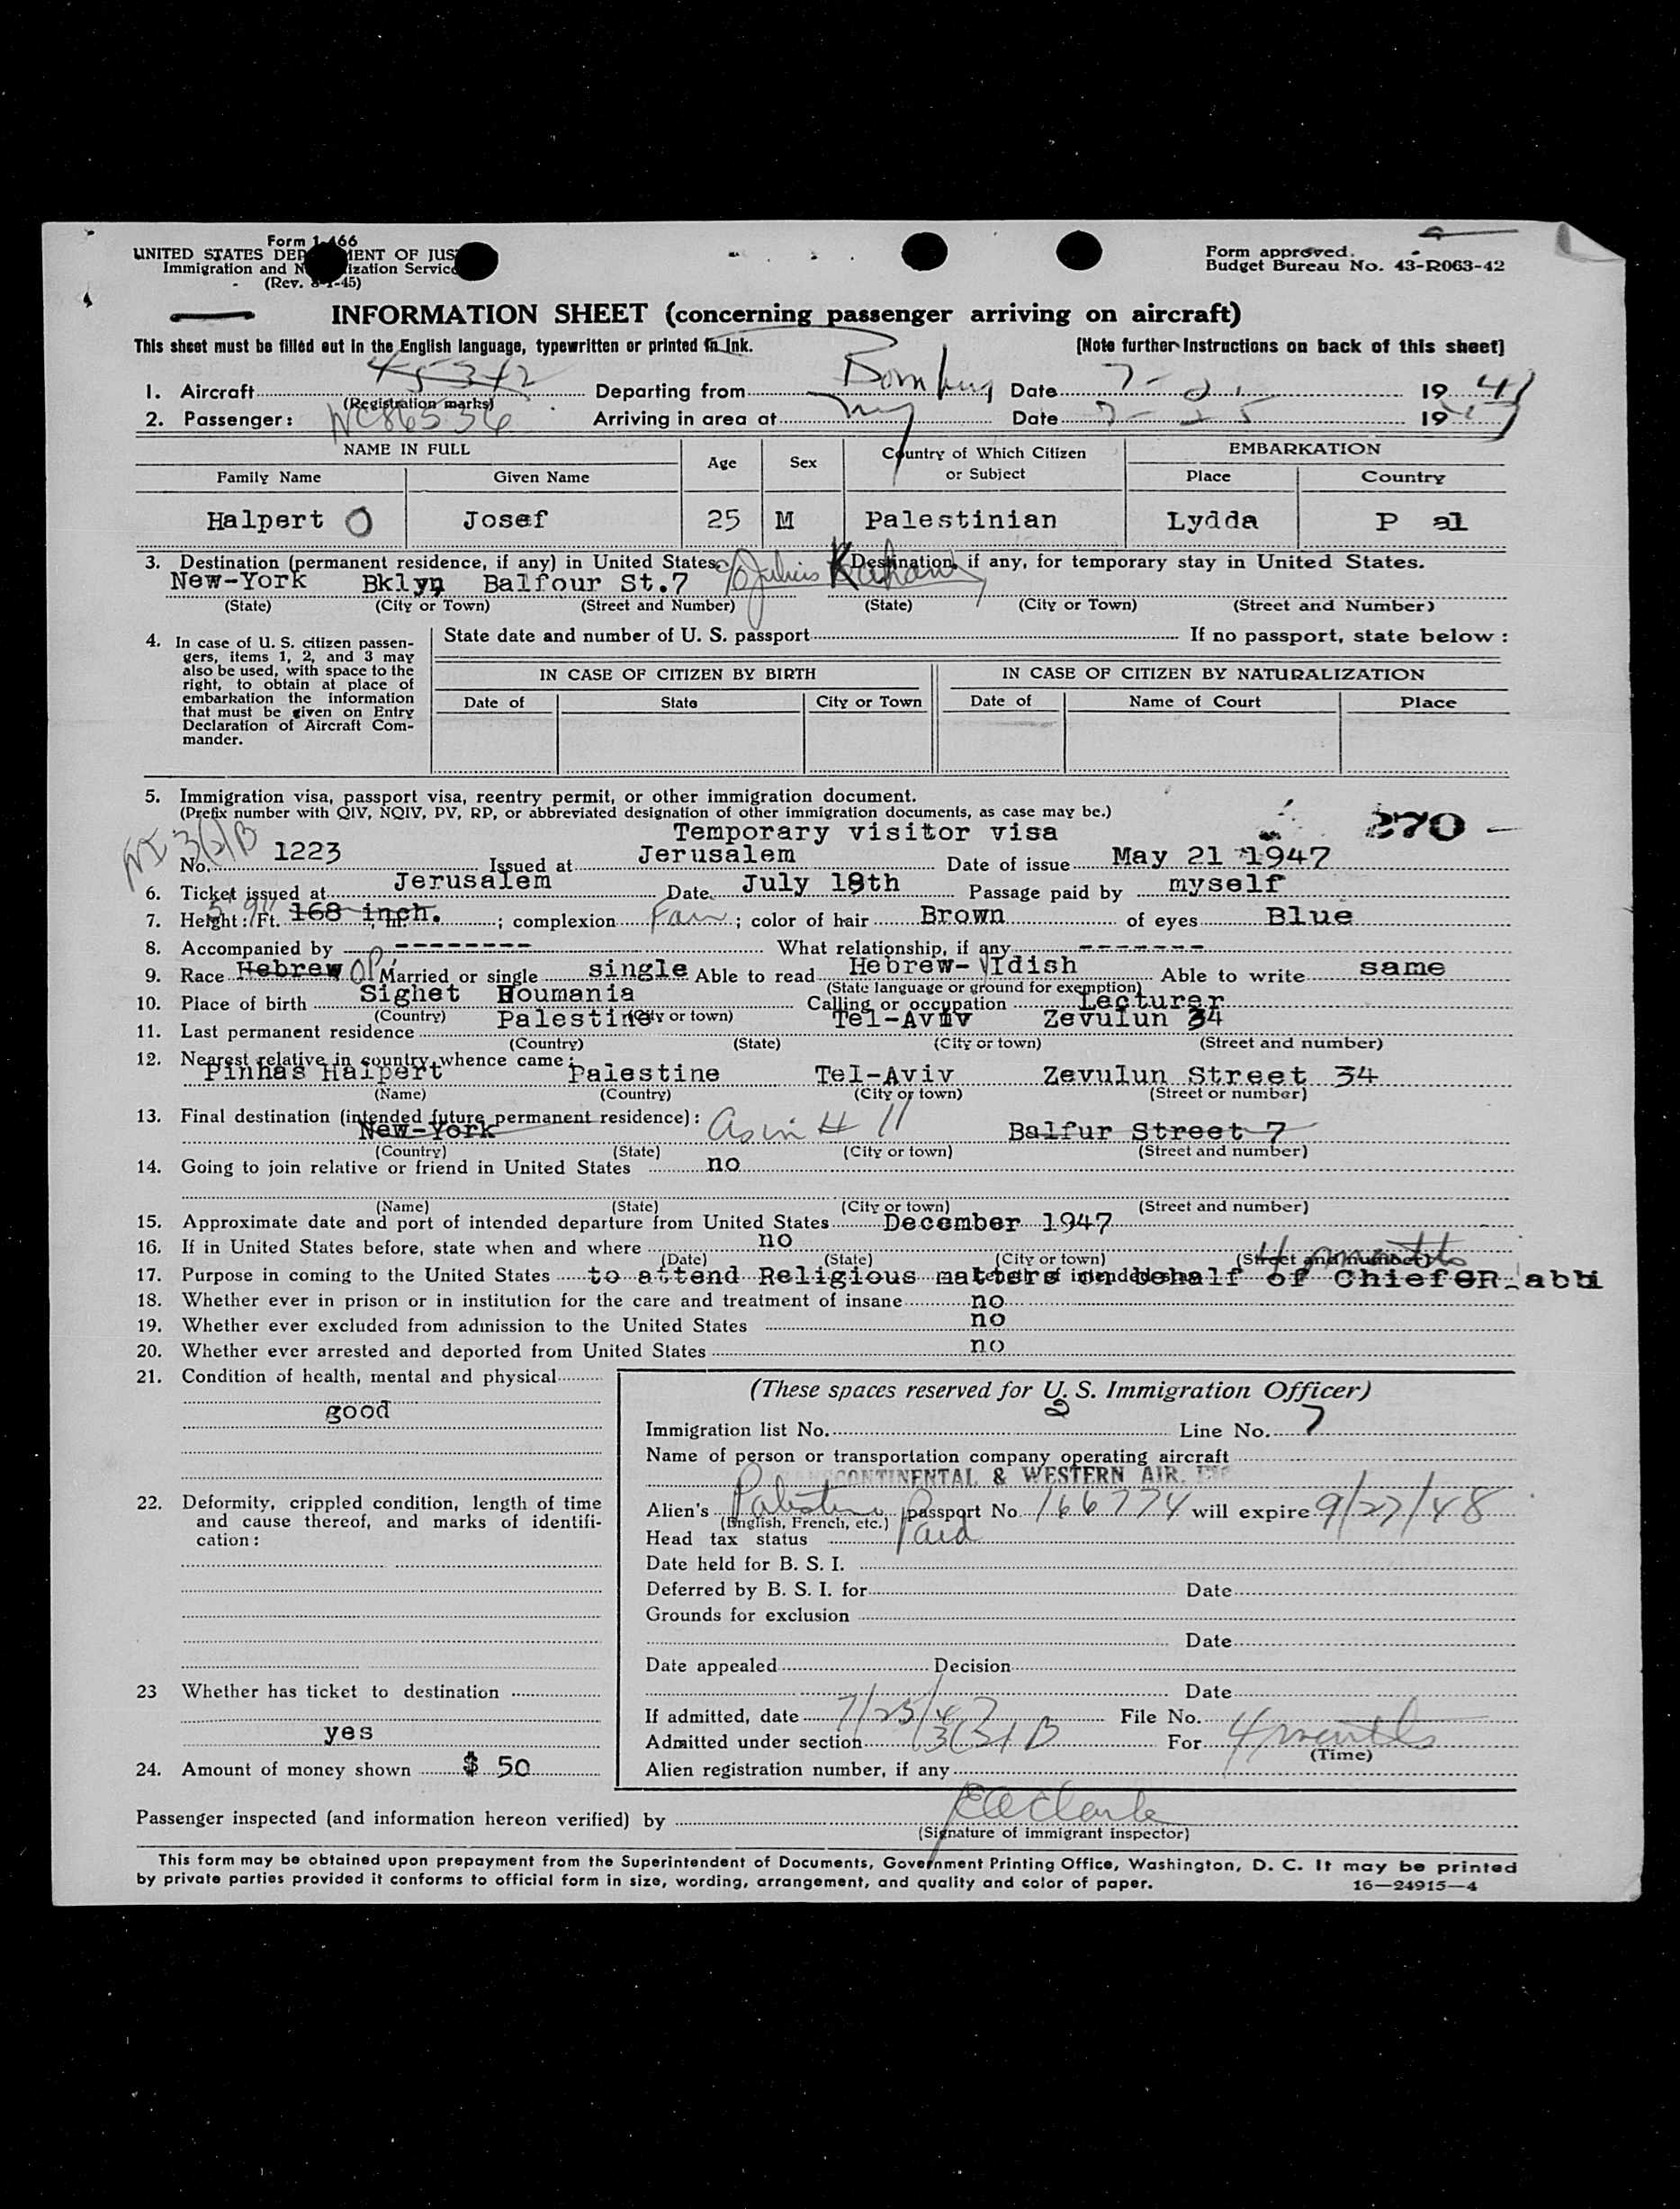 Form I-466
UNITED STATES DEP MENT OF JUS
Immigration and N ization Service
(Rev. 8-1-45)
Form approved.
Budget Bureau No. 43-R063-42
INFORMATION SHEET (concerning passenger arriving on aircraft)
This sheet must be filled out in the English language, typewritten or printed in ink. (Note further instructions on back of this sheet)
45342
1. Aircraft Departing from Bombay Date 7-21 1947
(Registration marks)
2. Passenger: NC86536 Arriving in area at NY Date 7-25 1947
NAME IN FULL Age Sex Country of Which Citizen or Subject EMBARKATION
Family Name Given Name Place Country
Halpert Josef 25 M Palestinian Lydda P al
3. Destination (permanent residence, if any) in United States. c/o Julius Kahan Destination, if any, for temporary stay in United States.
New-York Bklyn, Balfour St.7
(State) (City or Town) (Street and Number) (State) (City or Town) (Street and Number)
4. In case of U. S. citizen passengers, items 1, 2, and 3 may also be used, with space to the right, to obtain at place of embarkation the information that must be given on Entry Declaration of Aircraft Commander.
State date and number of U. S. passport If no passport, state below:
IN CASE OF CITIZEN BY BIRTH IN CASE OF CITIZEN BY NATURALIZATION
Date of State City or Town Date of Name of Court Place
5. Immigration visa, passport visa, reentry permit, or other immigration document.
(Prefix number with QIV, NQIV, PV, RP, or abbreviated designation of other immigration documents, as case may be.)
Temporary visitor visa 270
NI 3(2)B
No. 1223 Issued at Jerusalem Date of issue May 21 1947
6. Ticket issued at Jerusalem Date July 18th Passage paid by myself
7. Height: Ft. 168 inch. ; complexion Fair ; color of hair Brown of eyes Blue
8. Accompanied by -------- What relationship, if any -------
9. Race Hebrew Married or single single Able to read Hebrew-YIdish Able to write same
(State language or ground for exemption)
10. Place of birth Sighet Roumania Calling or occupation Lecturer
(Country) (City or town)
11. Last permanent residence Palestine Tel-Aviv Zevulun 34
(Country) (State) (City or town) (Street and number)
12. Nearest relative in country whence came:
Pinhas Halpert Palestine Tel-Aviv Zevulun Street 34
(Name) (Country) (City or town) (Street or number)
13. Final destination (intended future permanent residence): as in # 11
New-York Balfur Street 7
(Country) (State) (City or town) (Street and number)
14. Going to join relative or friend in United States no
(Name) (State) (City or town) (Street and number)
15. Approximate date and port of intended departure from United States December 1947
16. If in United States before, state when and where no
(Date) (State) (City or town) (Street and number) 4 months
17. Purpose in coming to the United States to attend Religious matters on behalf of Chief R abbi
18. Whether ever in prison or in institution for the care and treatment of insane no
19. Whether ever excluded from admission to the United States no
20. Whether ever arrested and deported from United States no
21. Condition of health, mental and physical
good
22. Deformity, crippled condition, length of time and cause thereof, and marks of identification:
23 Whether has ticket to destination
yes
24. Amount of money shown $ 50
(These spaces reserved for U. S. Immigration Officer)
Immigration list No. 2 Line No. 7
Name of person or transportation company operating aircraft
CONTINENTAL & WESTERN AIR. INC
Alien's Palestine passport No. 166774 will expire 9/27/48
(English, French, etc.)
Head tax status Paid
Date held for B. S. I.
Deferred by B. S. I. for Date
Grounds for exclusion
Date
Date appealed Decision
Date
If admitted, date 7/25/47 File No.
Admitted under section 3(2)B For 4 months
(Time)
Alien registration number, if any
Passenger inspected (and information hereon verified) by
(Signature of immigrant inspector)
This form may be obtained upon prepayment from the Superintendent of Documents, Government Printing Office, Washington, D. C. It may be printed
by private parties provided it conforms to official form in size, wording, arrangement, and quality and color of paper. 16—24915—4